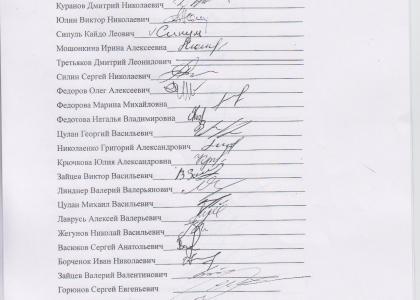 Куранов Дмитрий Николаевич
Юлин Виктор Николаевич
Сипуль Кайдо Леович
Мошонкина Ирина Алексеевна
Третьяков Дмитрий Леонидович
Силин Сергей Николаевич
Федоров Олег Алексеевич
Федорова Марина Михайловна
Федотова Наталья Владимировна
Цулан Георгий Васильевич
Николаенко Григорий Александрович
Крючкова Юлия Александровна
Зайцев Виктор Васильевич
Линднер Валерий Валерьянович
Цулан Михаил Васильевич
Лаврусь Алексей Валерьевич
Жегунов Николай Васильевич
Васюков Сергей Анатольевич
Борченок Иван Николаевич
Зайцев Валерий Валентинович
Горюнов Сергей Евгеньевич